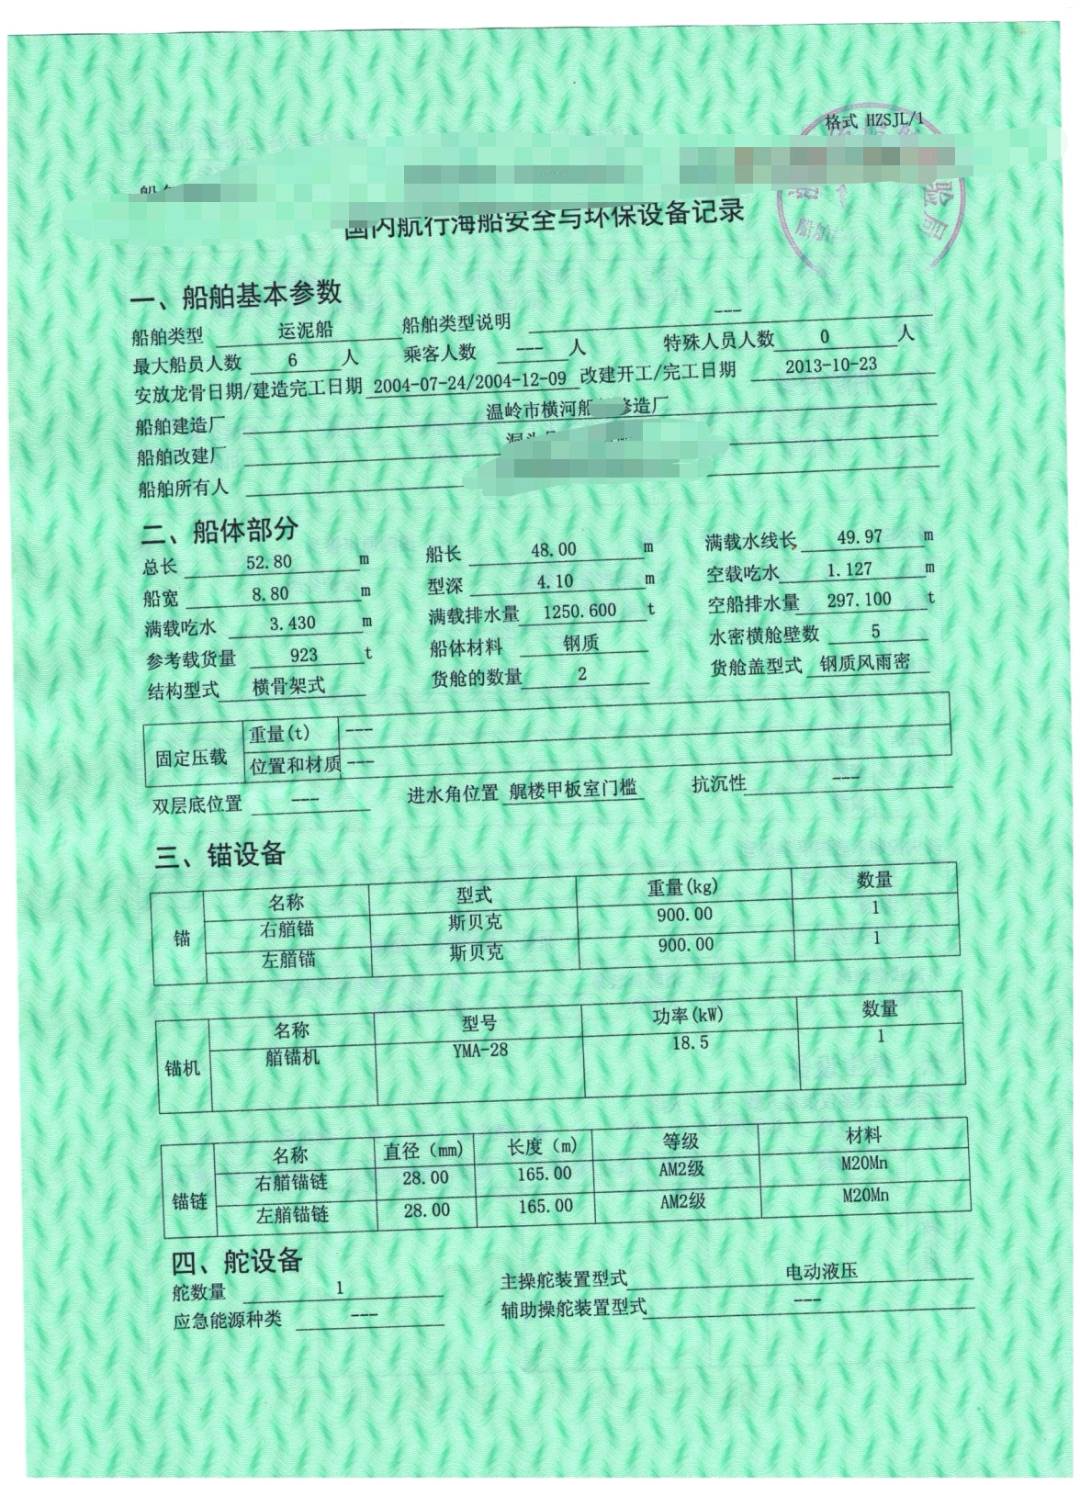 格式 HZSJL/1
国内航行海船安全与环保设备记录
一、船舶基本参数
船舶类型 运泥船 船舶类型说明 ---
最大船员人数 6 人 乘客人数 --- 人 特殊人员人数 0 人
安放龙骨日期/建造完工日期 2004-07-24/2004-12-09 改建开工/完工日期 2013-10-23
船舶建造厂 温岭市横河船 修造厂
船舶改建厂
船舶所有人
二、船体部分
总长 52.80 m 船长 48.00 m 满载水线长 49.97 m
船宽 8.80 m 型深 4.10 m 空载吃水 1.127 m
满载吃水 3.430 m 满载排水量 1250.600 t 空船排水量 297.100 t
参考载货量 923 t 船体材料 钢质 水密横舱壁数 5
结构型式 横骨架式 货舱的数量 2 货舱盖型式 钢质风雨密
固定压载 重量(t) ---
位置和材质 ---
双层底位置 --- 进水角位置 艉楼甲板室门槛 抗沉性 ---
三、锚设备
锚 名称 型式 重量(kg) 数量
右艏锚 斯贝克 900.00 1
左艏锚 斯贝克 900.00 1
锚机 名称 型号 功率(kW) 数量
艏锚机 YMA-28 18.5 1
锚链 名称 直径 (mm) 长度 (m) 等级 材料
右艏锚链 28.00 165.00 AM2级 M20Mn
左艏锚链 28.00 165.00 AM2级 M20Mn
四、舵设备
舵数量 1 主操舵装置型式 电动液压
应急能源种类 --- 辅助操舵装置型式 ---